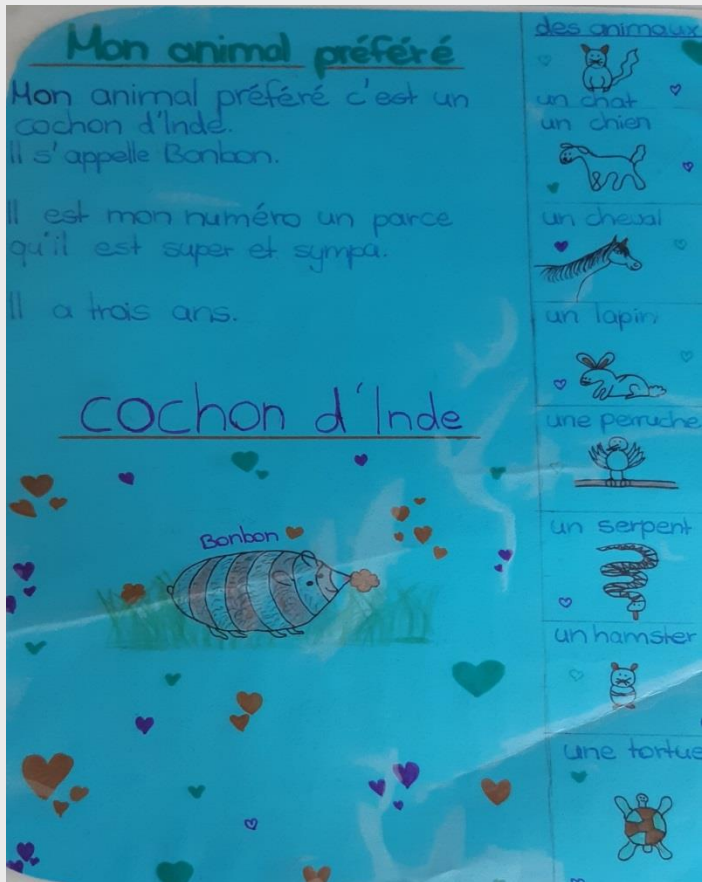 Mon animal préféré
Mon animal préféré c'est un
cochon d'Inde.
Il s'appelle Bonbon.
Il est mon numéro un parce
qu'il est super et sympa.
Il a trois ans.
cochon d'Inde
Bonbon
des animaux
un chat
un chien
un cheval
un lapin
une perruche
un serpent
un hamster
une tortue